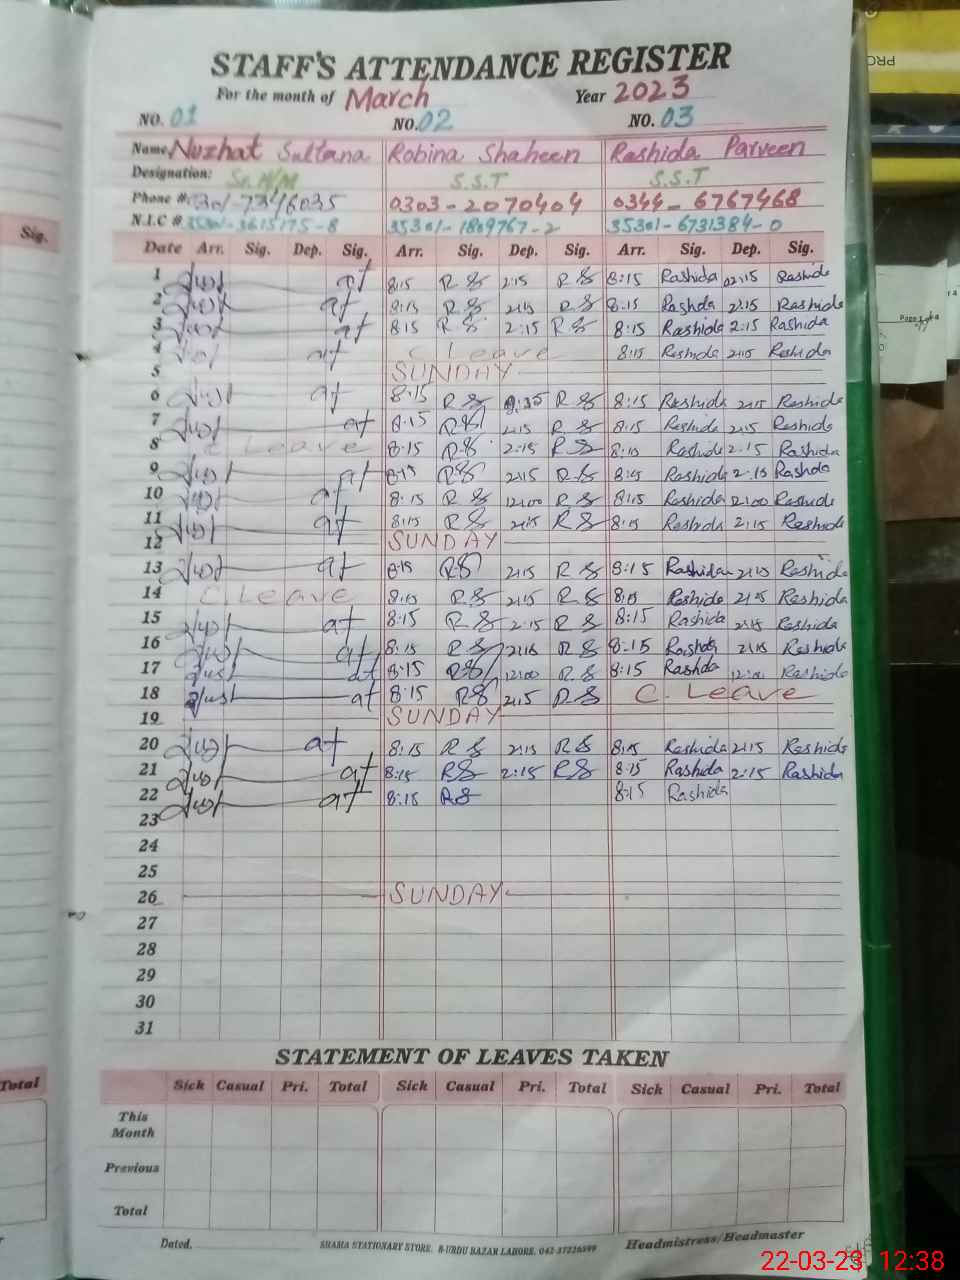 STAFF'S ATTENDANCE REGISTER
For the month of March Year 2023
NO. 01 NO. 02 NO. 03
Name Nuzhat Sultana Robina Shaheen Rashida Parveen
Designation: Sr. H/M S.S.T S.S.T
Phone #: 301-7346035 0303-2070404 0344-6767468
N.I.C #. 35301-1809767-2 35301-6731384-0
Sig. Date Arr. Sig. Dep. Sig. Arr. Sig. Dep. Sig. Arr. Sig. Dep. Sig.
1 8:15 RS 2:15 RS 8:15 Rashida 02:15 Rashida
2 8:15 RS 2:15 RS 8:15 Rashda 2:15 Rashida
3 8:15 RS 2:15 RS 8:15 Rashida 2:15 Rashida
4 C Leave 8:15 Rashida 2:15 Rashida
5 SUNDAY
6 8:15 RS RS 8:15 Rashida 2:15 Rashida
7 8:15 RS 2:15 RS 8:15 Rashida 2:15 Rashida
8 C Leave 8:15 RS 2:15 RS 8:15 Rashida 2:15 Rashida
9 8:15 RS 2:15 RS 8:15 Rashida 2:15 Rashda
10 8:15 RS 12:00 RS 8:15 Rashida 12:00 Rashida
11 8:15 RS 2:15 RS 8:15 Rashida 2:15 Rashida
12 SUNDAY
13 8:15 RS 2:15 RS 8:15 Rashida 2:15 Rashida
14 C. Leave 8:15 RS 2:15 RS 8:15 Rashida 2:15 Rashida
15 8:15 RS 2:15 RS 8:15 Rashida 2:15 Rashida
16 8:15 RS 2:15 RS 8:15 Rashda 2:15 Rashida
17 8:15 RS 12:00 RS 8:15 Rashda 12:00 Rashida
18 8:15 RS 2:15 RS C. Leave
19 SUNDAY
20 8:15 RS 2:15 RS 8:15 Rashida 2:15 Rashida
21 8:15 RS 2:15 RS 8:15 Rashida 2:15 Rashida
22 8:15 RS 8:15 Rashida
23
24
25
26 SUNDAY
27
28
29
30
31
STATEMENT OF LEAVES TAKEN
Total Sick Casual Pri. Total Sick Casual Pri. Total Sick Casual Pri. Total
This Month
Previous
Total
Dated. SHAMA STATIONARY STORE. 8-URDU BAZAR LAHORE. 042-37226599 Headmistress/Headmaster
22-03-23 12:38